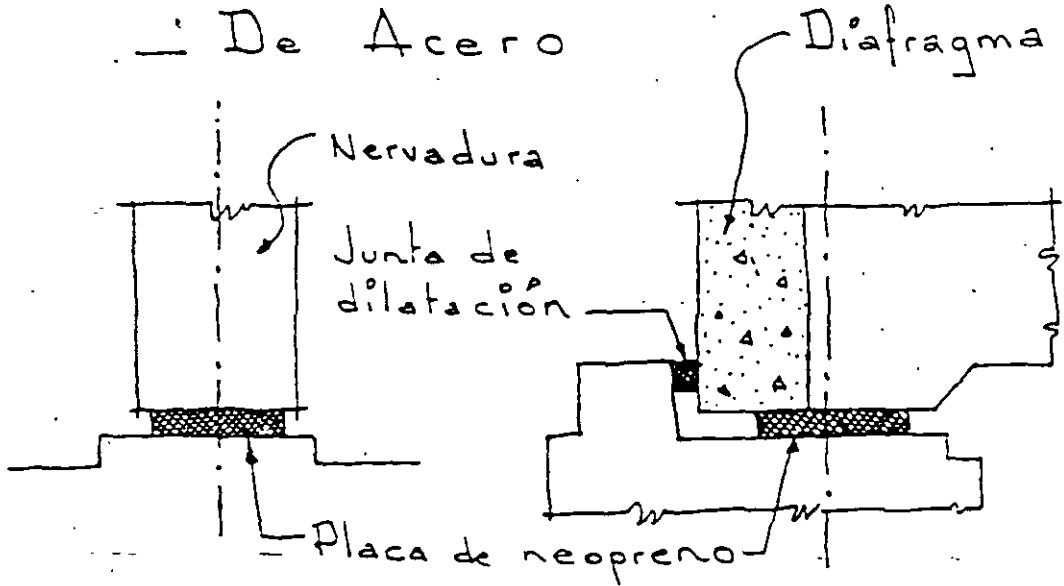 De Acero
Diafragma
Nervadura
Junta de
dilatación
Placa de neopreno